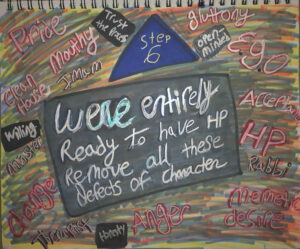 Pride
Mouthy
Trust
the Process
Step
6
gluttony
open-
minded
Ego
Clean
House
Imam
Were entirely
Ready to have HP
Remove all these
defects of character
Acceptance
Willing
minister
HP
Rabbi
Change
Therapist
Honesty
Anger
Memetic
desire